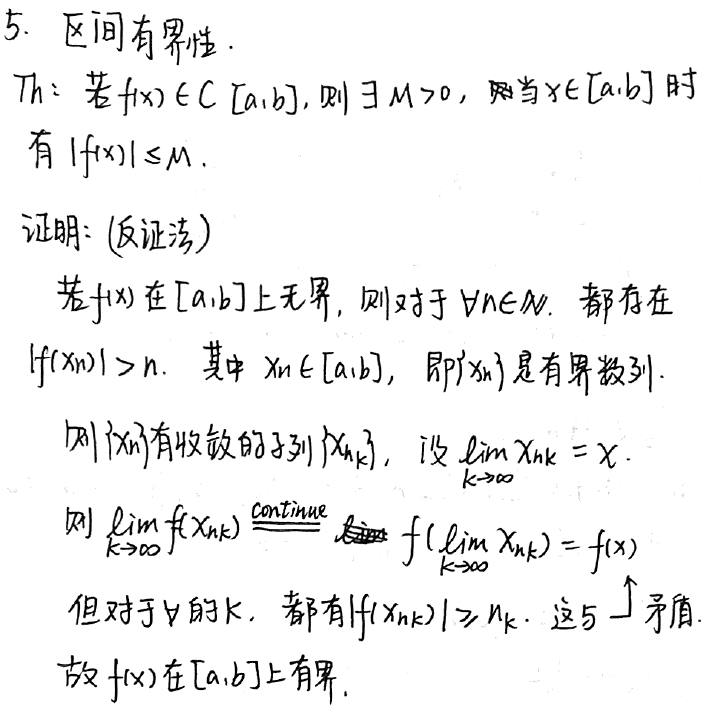 5. 区间有界性.
Th: 若 f(x) ∈ C [a,b], 则 ∃ M>0, 当 x∈[a,b] 时
有 |f(x)| ≤ M.
证明: (反证法)
若 f(x) 在 [a,b] 上无界, 则对于 ∀n∈N. 都存在
|f(xn)| > n. 其中 xn ∈ [a,b], 即{xn} 是有界数列.
则{xn}有收敛的子列{x_{n_k}}, 设 lim_{k→∞} x_{nk} = x.
则 lim_{k→∞} f(x_{nk}) \overset{continue}{=} f(lim_{k→∞} x_{nk}) = f(x)
但对于∀的k. 都有|f(x_{nk})| ≥ n_k. 这与 ↑ 矛盾.
故 f(x) 在 [a,b] 上有界.